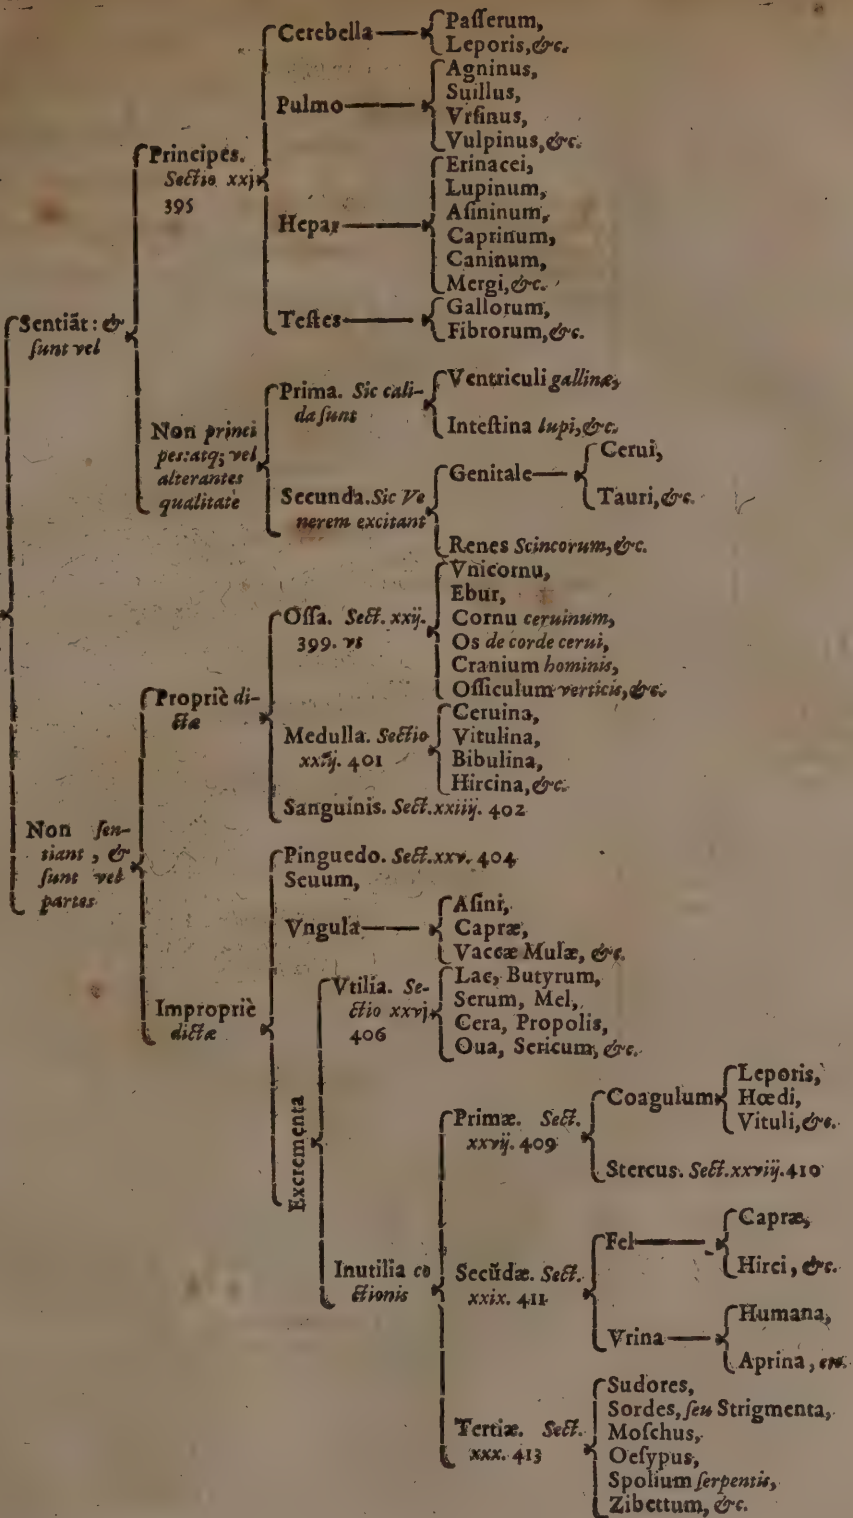 Sentiãt: &
sunt vel
Principes.
Sectio xxj
395
Cerebella
Passerum,
Leporis, &c.
Pulmo
Agninus,
Suillus,
Vrsinus,
Vulpinus, &c.
Hepar
Erinacei,
Lupinum,
Asininum,
Caprinum,
Caninum,
Mergi, &c.
Testes
Gallorum,
Fibrorum, &c.
Non princi
pes: atq; vel
alterantes
qualitate
Prima. Sic cali-
da sunt
Ventriculi gallinæ,
Intestina lupi, &c.
Secunda. Sic Ve
nerem excitant
Genitale
Cerui,
Tauri, &c.
Renes Scincorum, &c.
Non sen-
tiant, &
sunt vel
partes
Propriè di-
ctæ
Ossa. Sect. xxij.
399. vs
Vnicornu,
Ebur,
Cornu ceruinum,
Os de corde cerui,
Cranium hominis,
Officulum verticis, &c.
Medulla. Sectio
xxiij. 401
Ceruina,
Vitulina,
Bibulina,
Hircina, &c.
Sanguinis. Sect. xxiiij. 402
Impropriè
dictæ
Pinguedo. Sect. xxv. 404
Seuum,
Vngula
Asini,
Capræ,
Vaccæ Mulæ, &c.
Excrementa
Vtilia. Se-
ctio xxvj
406
Lac, Butyrum,
Serum, Mel,
Cera, Propolis,
Oua, Sericum, &c.
Inutilia co
ctionis
Primæ. Sect.
xxvij. 409
Coagulum
Leporis,
Hœdi,
Vituli, &c.
Stercus. Sect. xxviij. 410
Secũdæ. Sect.
xxix. 411
Fel
Capræ,
Hirci, &c.
Vrina
Humana,
Aprina, &c.
Tertiæ. Sect.
xxx. 413
Sudores,
Sordes, seu Strigmenta,
Moschus,
Oesypus,
Spolium serpentis,
Zibettum, &c.